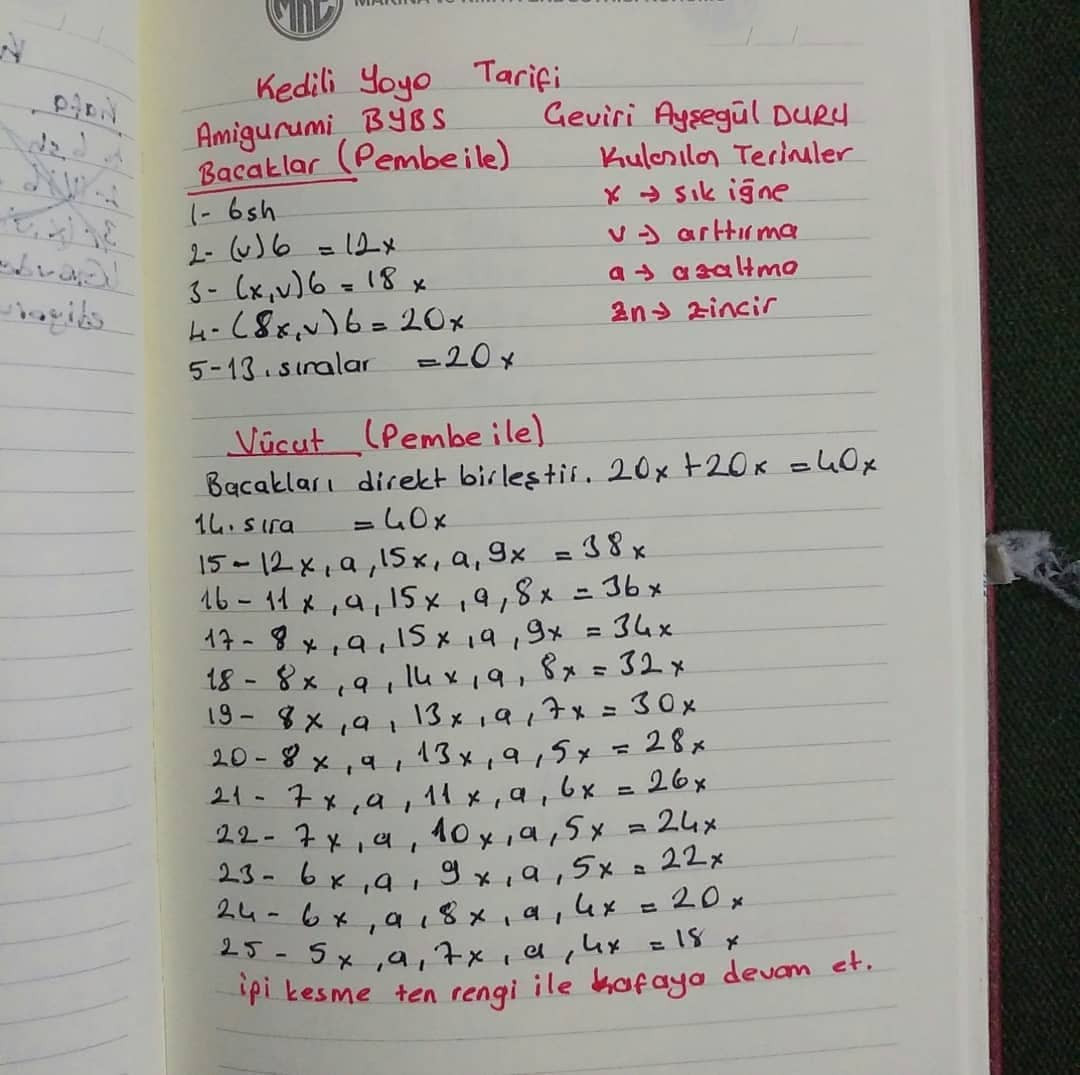 Kedili Yoyo Tarifi
Amigurumi BYBS Çeviri Ayşegül DURU
Bacaklar (Pembe ile) Kulanılan Terimler
1- 6sh x → sık iğne
2- (v)6 = 12x v → arttırma
3- (x,v)6 = 18x a → azaltma
4- (8x,v)6 = 20x zn → zincir
5-13. sıralar = 20x
Vücut (Pembe ile)
Bacakları direkt birleştir. 20x+20x = 40x
14. sıra = 40x
15- 12x, a, 15x, a, 9x = 38x
16- 11x, a, 15x, a, 8x = 36x
17- 8x, a, 15x, a, 9x = 34x
18- 8x, a, 14x, a, 8x = 32x
19- 8x, a, 13x, a, 7x = 30x
20- 8x, a, 13x, a, 5x = 28x
21- 7x, a, 11x, a, 6x = 26x
22- 7x, a, 10x, a, 5x = 24x
23- 6x, a, 9x, a, 5x = 22x
24- 6x, a, 8x, a, 4x = 20x
25- 5x, a, 7x, a, 4x = 18x
ipi kesme ten rengi ile kafaya devam et.